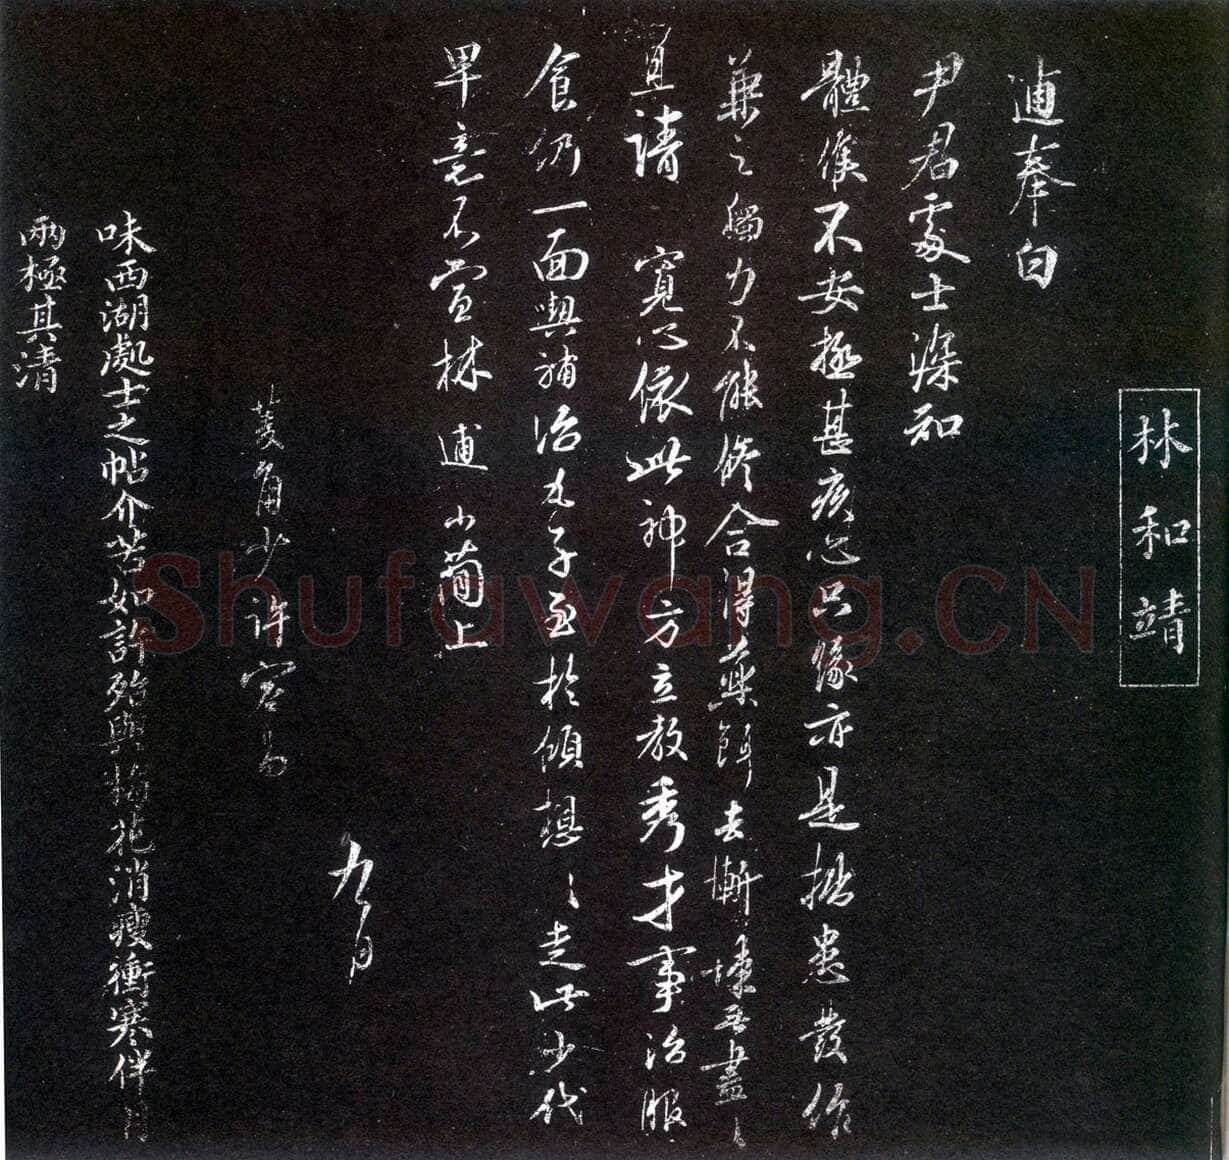 林和靖
逋奉白
尹君處士深知
體候不安極甚疚心只緣亦是拙患發作
兼之觸力不能修合得藥餌去慚悚無盡〻
且請 寬心依此神方立教秀才事治服
食仍一面與補治丸子至於傾想〻走此少代
單毫不宣林逋小簡上
九月
菱角少許容易
味西湖處士之帖介苦如許殆與梅花消瘦衝寒伴月
兩極其清
Shufawang.CN